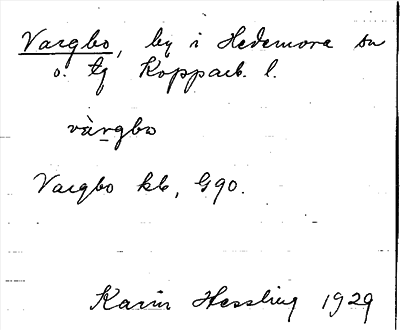 Vargbo, by i Hedemora sn
o. tg Kopparb. l.
vàrgbo
Vargbo kb, G90.
Karin Hessling 1929